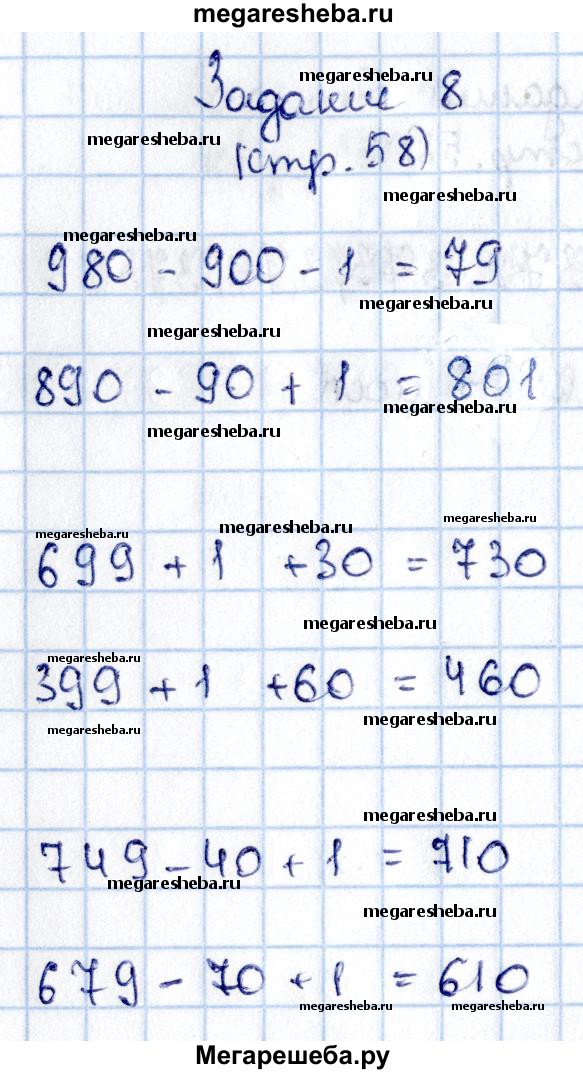 megaresheba.ru
Задание 8
megaresheba.ru
megaresheba.ru
(стр. 58)
megaresheba.ru
megaresheba.ru
980 - 900 - 1 = 79
megaresheba.ru
megaresheba.ru
890 - 90 + 1 = 801
megaresheba.ru
megaresheba.ru
megaresheba.ru
megaresheba.ru
megaresheba.ru
699 + 1 + 30 = 730
megaresheba.ru
megaresheba.ru
399 + 1 + 60 = 460
megaresheba.ru
megaresheba.ru
megaresheba.ru
749 - 40 + 1 = 710
megaresheba.ru
megaresheba.ru
679 - 70 + 1 = 610
megaresheba.ru
megaresheba.ru
Мегарешеба.ру